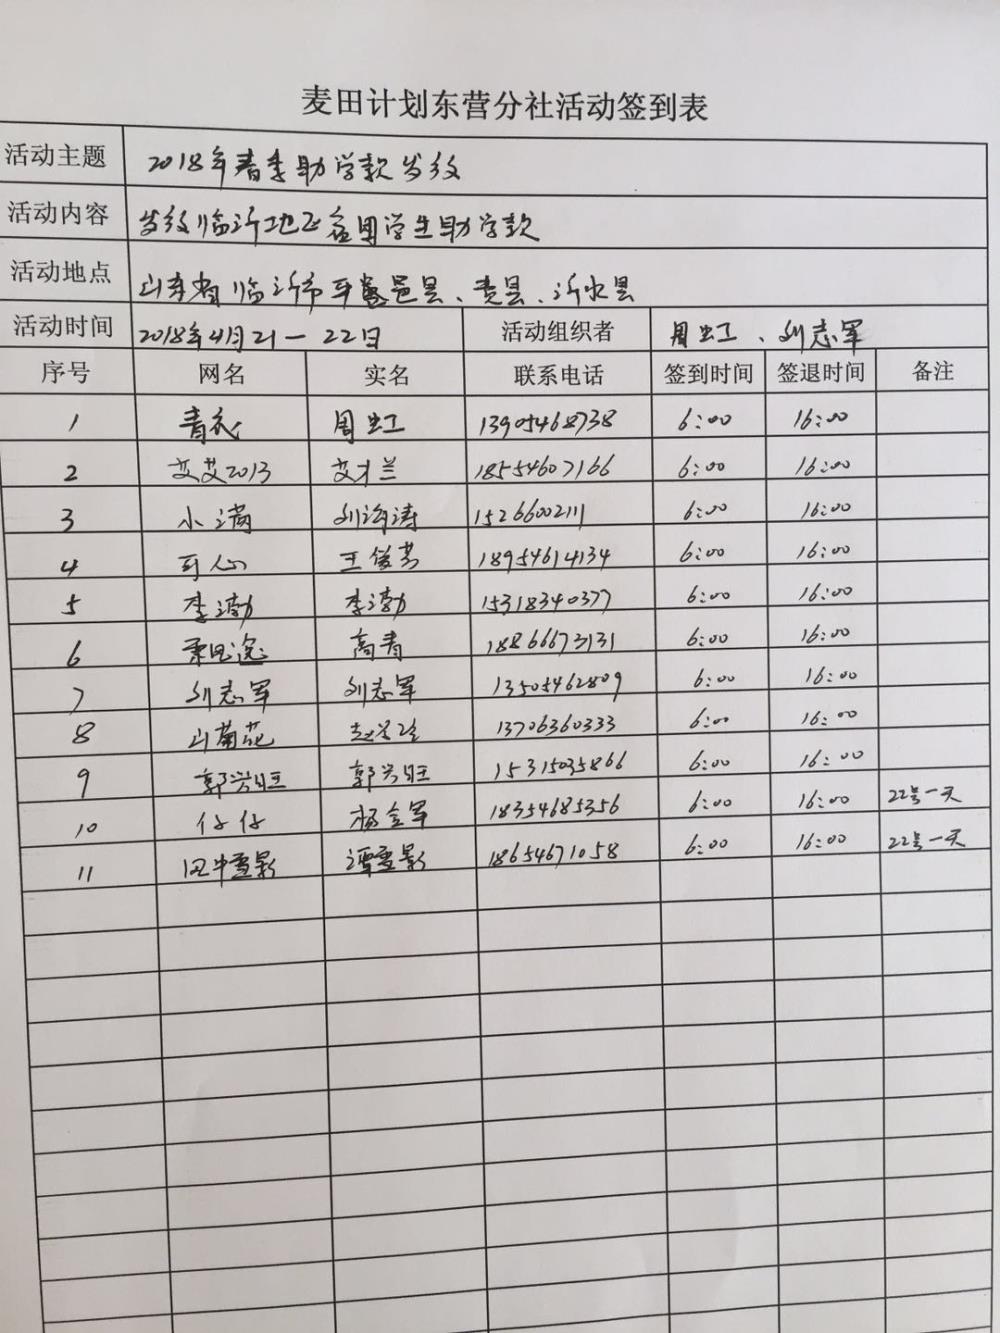 麦田计划东营分社活动签到表
活动主题 2018年春季助学款发放
活动内容 发放临沂地区贫困学生助学款
活动地点 山东省临沂市平邑县、费县、沂水县
活动时间 2018年4月21—22日 活动组织者 周虹、刘志军
序号 网名 实名 联系电话 签到时间 签退时间 备注
1 青衣 周虹 13905468738 6:00 16:00
2 艾艾2013 艾才兰 18554607166 6:00 16:00
3 小满 刘海涛 15266002111 6:00 16:00
4 可心 王俊芳 18954614134 6:00 16:00
5 李渤 李渤 15318340377 6:00 16:00
6 高青 18866673131 6:00 16:00
7 刘志军 刘志军 13505462809 6:00 16:00
8 山菊花 13706360333 6:00 16:00
9 郭兴旺 郭兴旺 15315035866 6:00 16:00
10 仔仔 杨金军 18354685356 6:00 16:00 22号一天
11 田中雪影 谭雪影 18654671058 6:00 16:00 22号一天